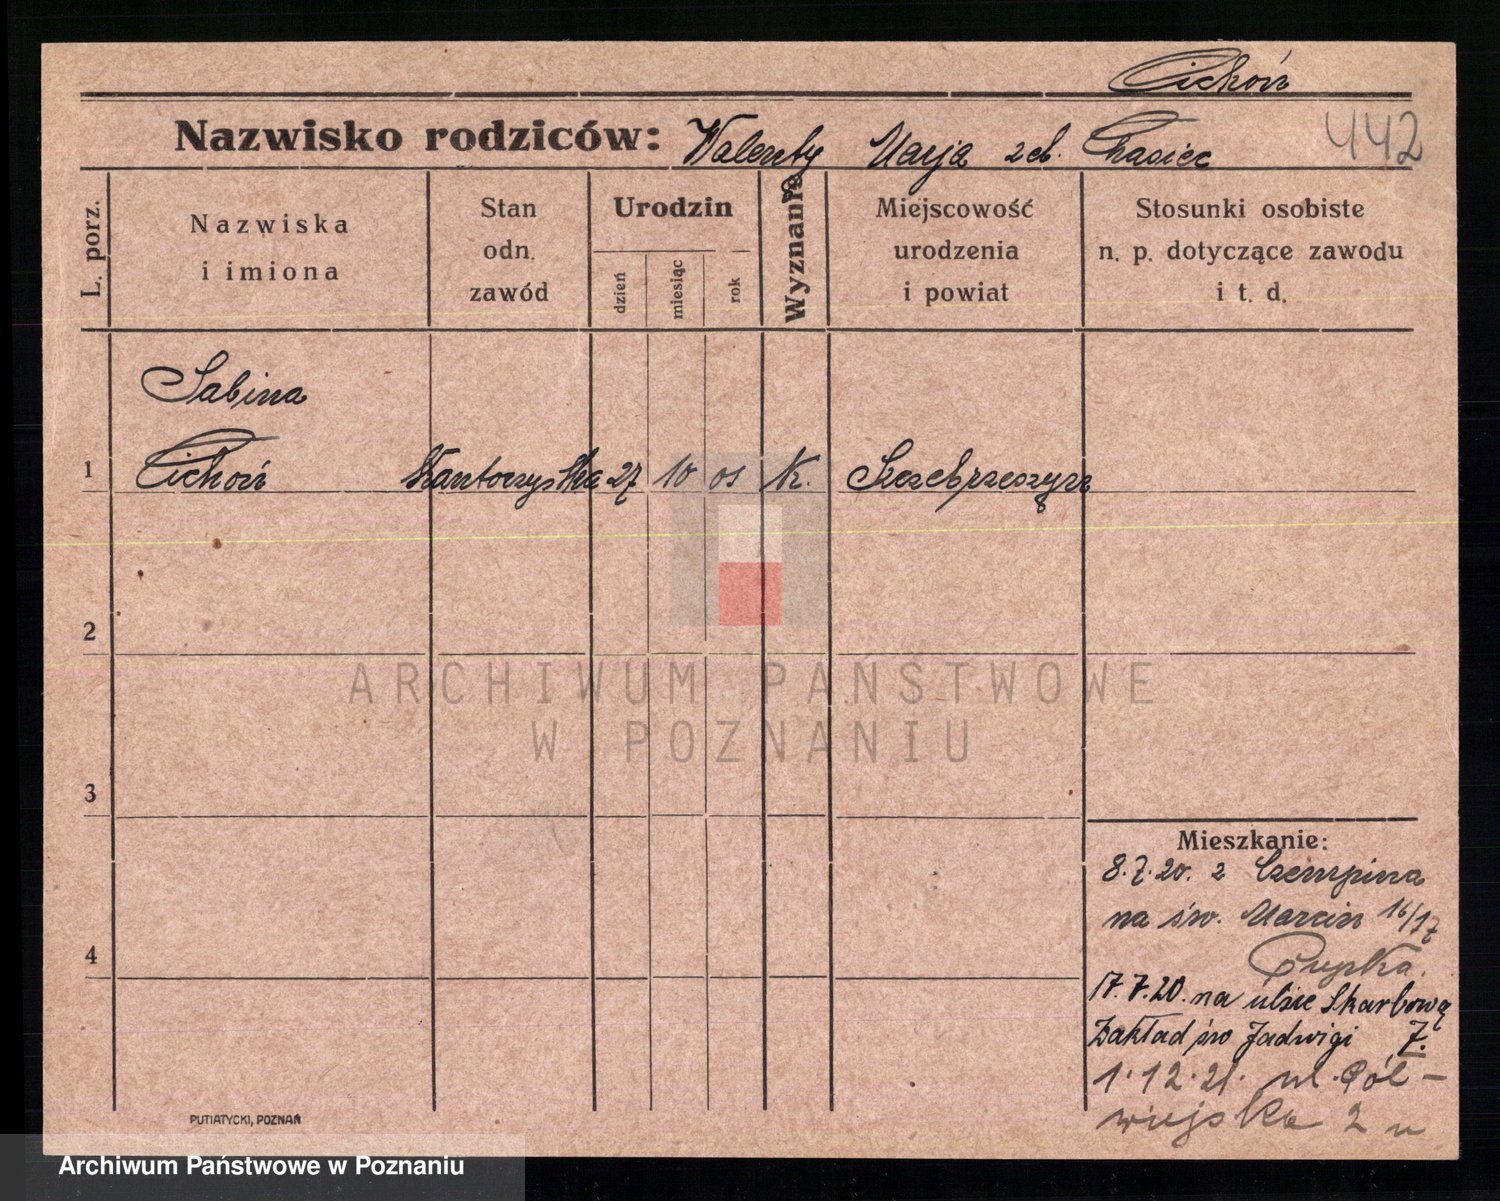 Cichoń
Nazwisko rodziców: Walenty Marja z d. Chasiec
442
L. porz.
Nazwiska
i imiona
Stan
odn.
zawód
Urodzin
dzień
miesiąc
rok
Wyznanie
Miejscowość
urodzenia
i powiat
Stosunki osobiste
n. p. dotyczące zawodu
i t. d.
Sabina
1 Cichoń Kantorzystka 27 10 01 K. Szczebrzeszyn
2
3
4
Mieszkanie:
8.7.20. z Czempina
na św. Marcin 16/17
17.7.20. na ulice Skarbową
Zakład św Jadwigi 7.
1.12.21. ul. Pól-
wiejska 2 u
PUTIATYCKI, POZNAŃ
ARCHIWUM PAŃSTWOWE
W POZNANIU
Archiwum Państwowe w Poznaniu